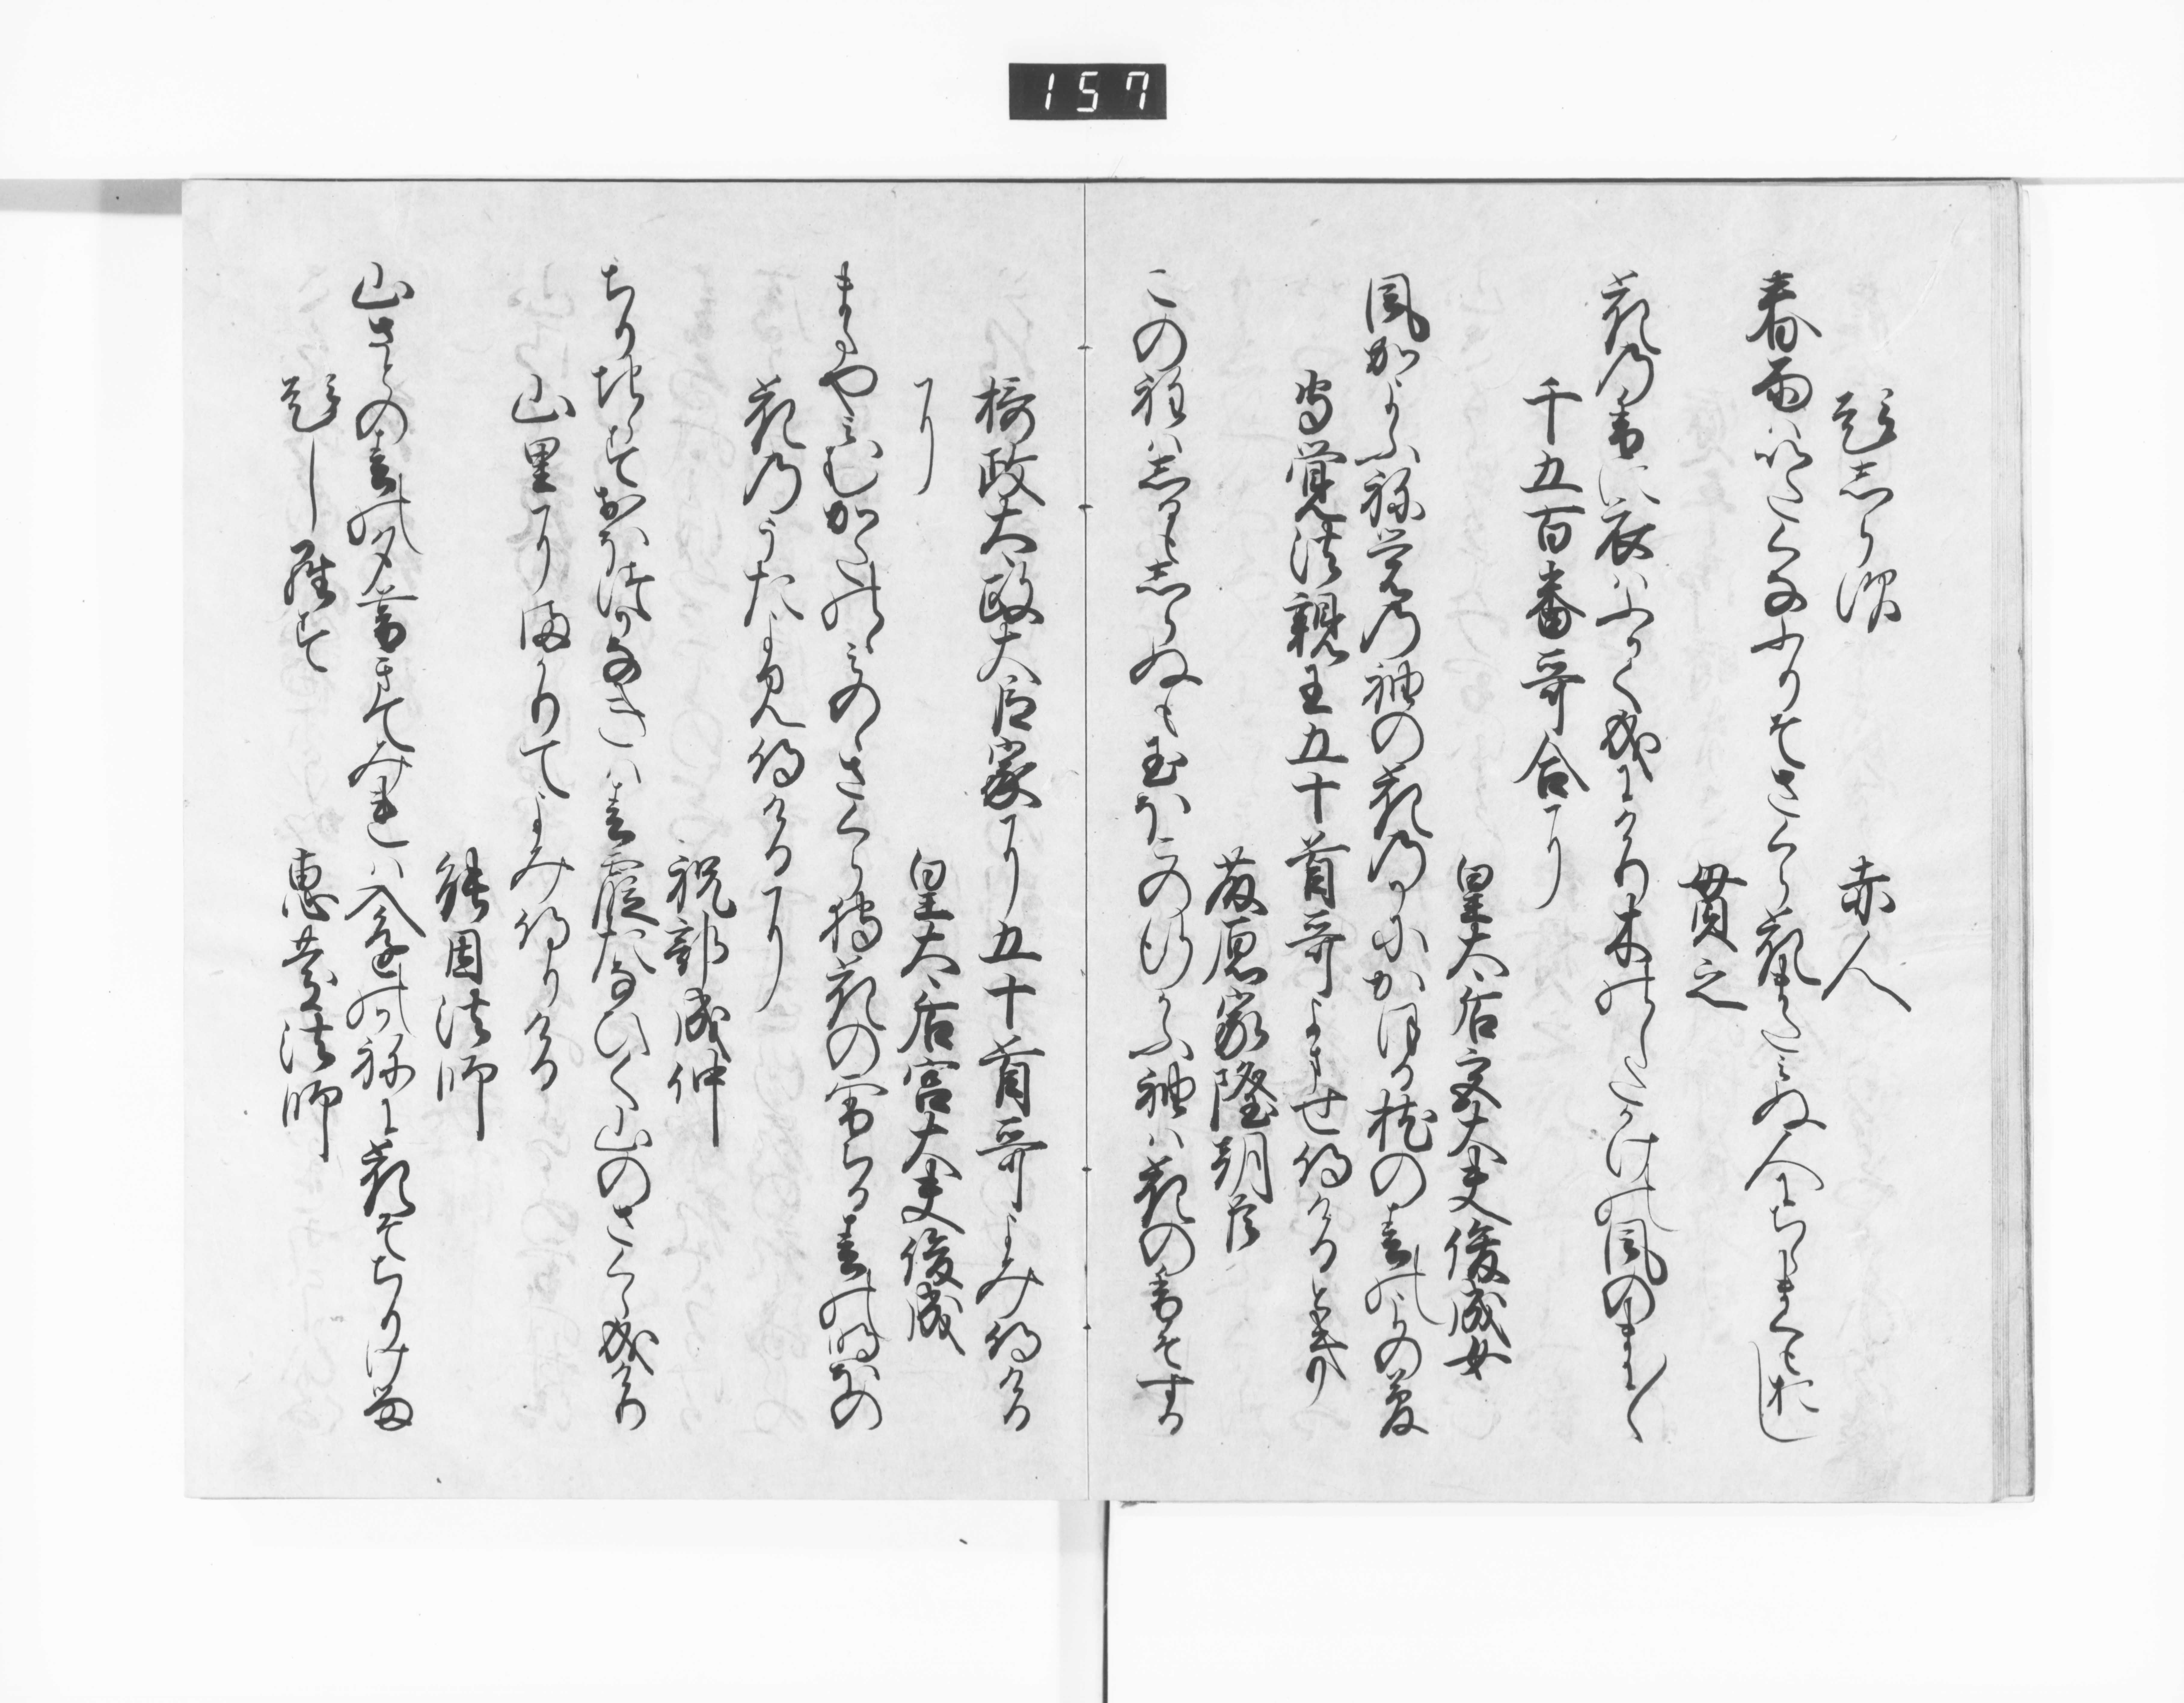 157
題しらす
赤人
春雨はいたくなふりそさくら花またみぬ人にちらまくもおし
貫之
花の香に衣はふかく成にけり木のしたかけの風のまに〳〵
千五百番哥合に
皇太后宮大夫俊成女
風かよふね覚の袖の花のかにかほる枕の春のよの夢
守覚法親王五十首哥よませ侍ける時
藤原家隆朝臣
この程はしるもしらぬも玉ほこの行かふ袖は花の香そする
摂政太政大臣家に五十首哥よみ侍ける
に
皇太后宮大夫俊成
またやみむかたのゝみのゝさくら狩花の雪ちる春の明ほの
花のうたよみ侍けるに
祝部成仲
ちりちらすおほつかなきは春霞たなひく山のさくら成けり
山里にまかりてよみ侍りける
能因法師
山さとの春の夕暮きてみれは入逢のかねに花そちりける
題しらす
恵慶法師